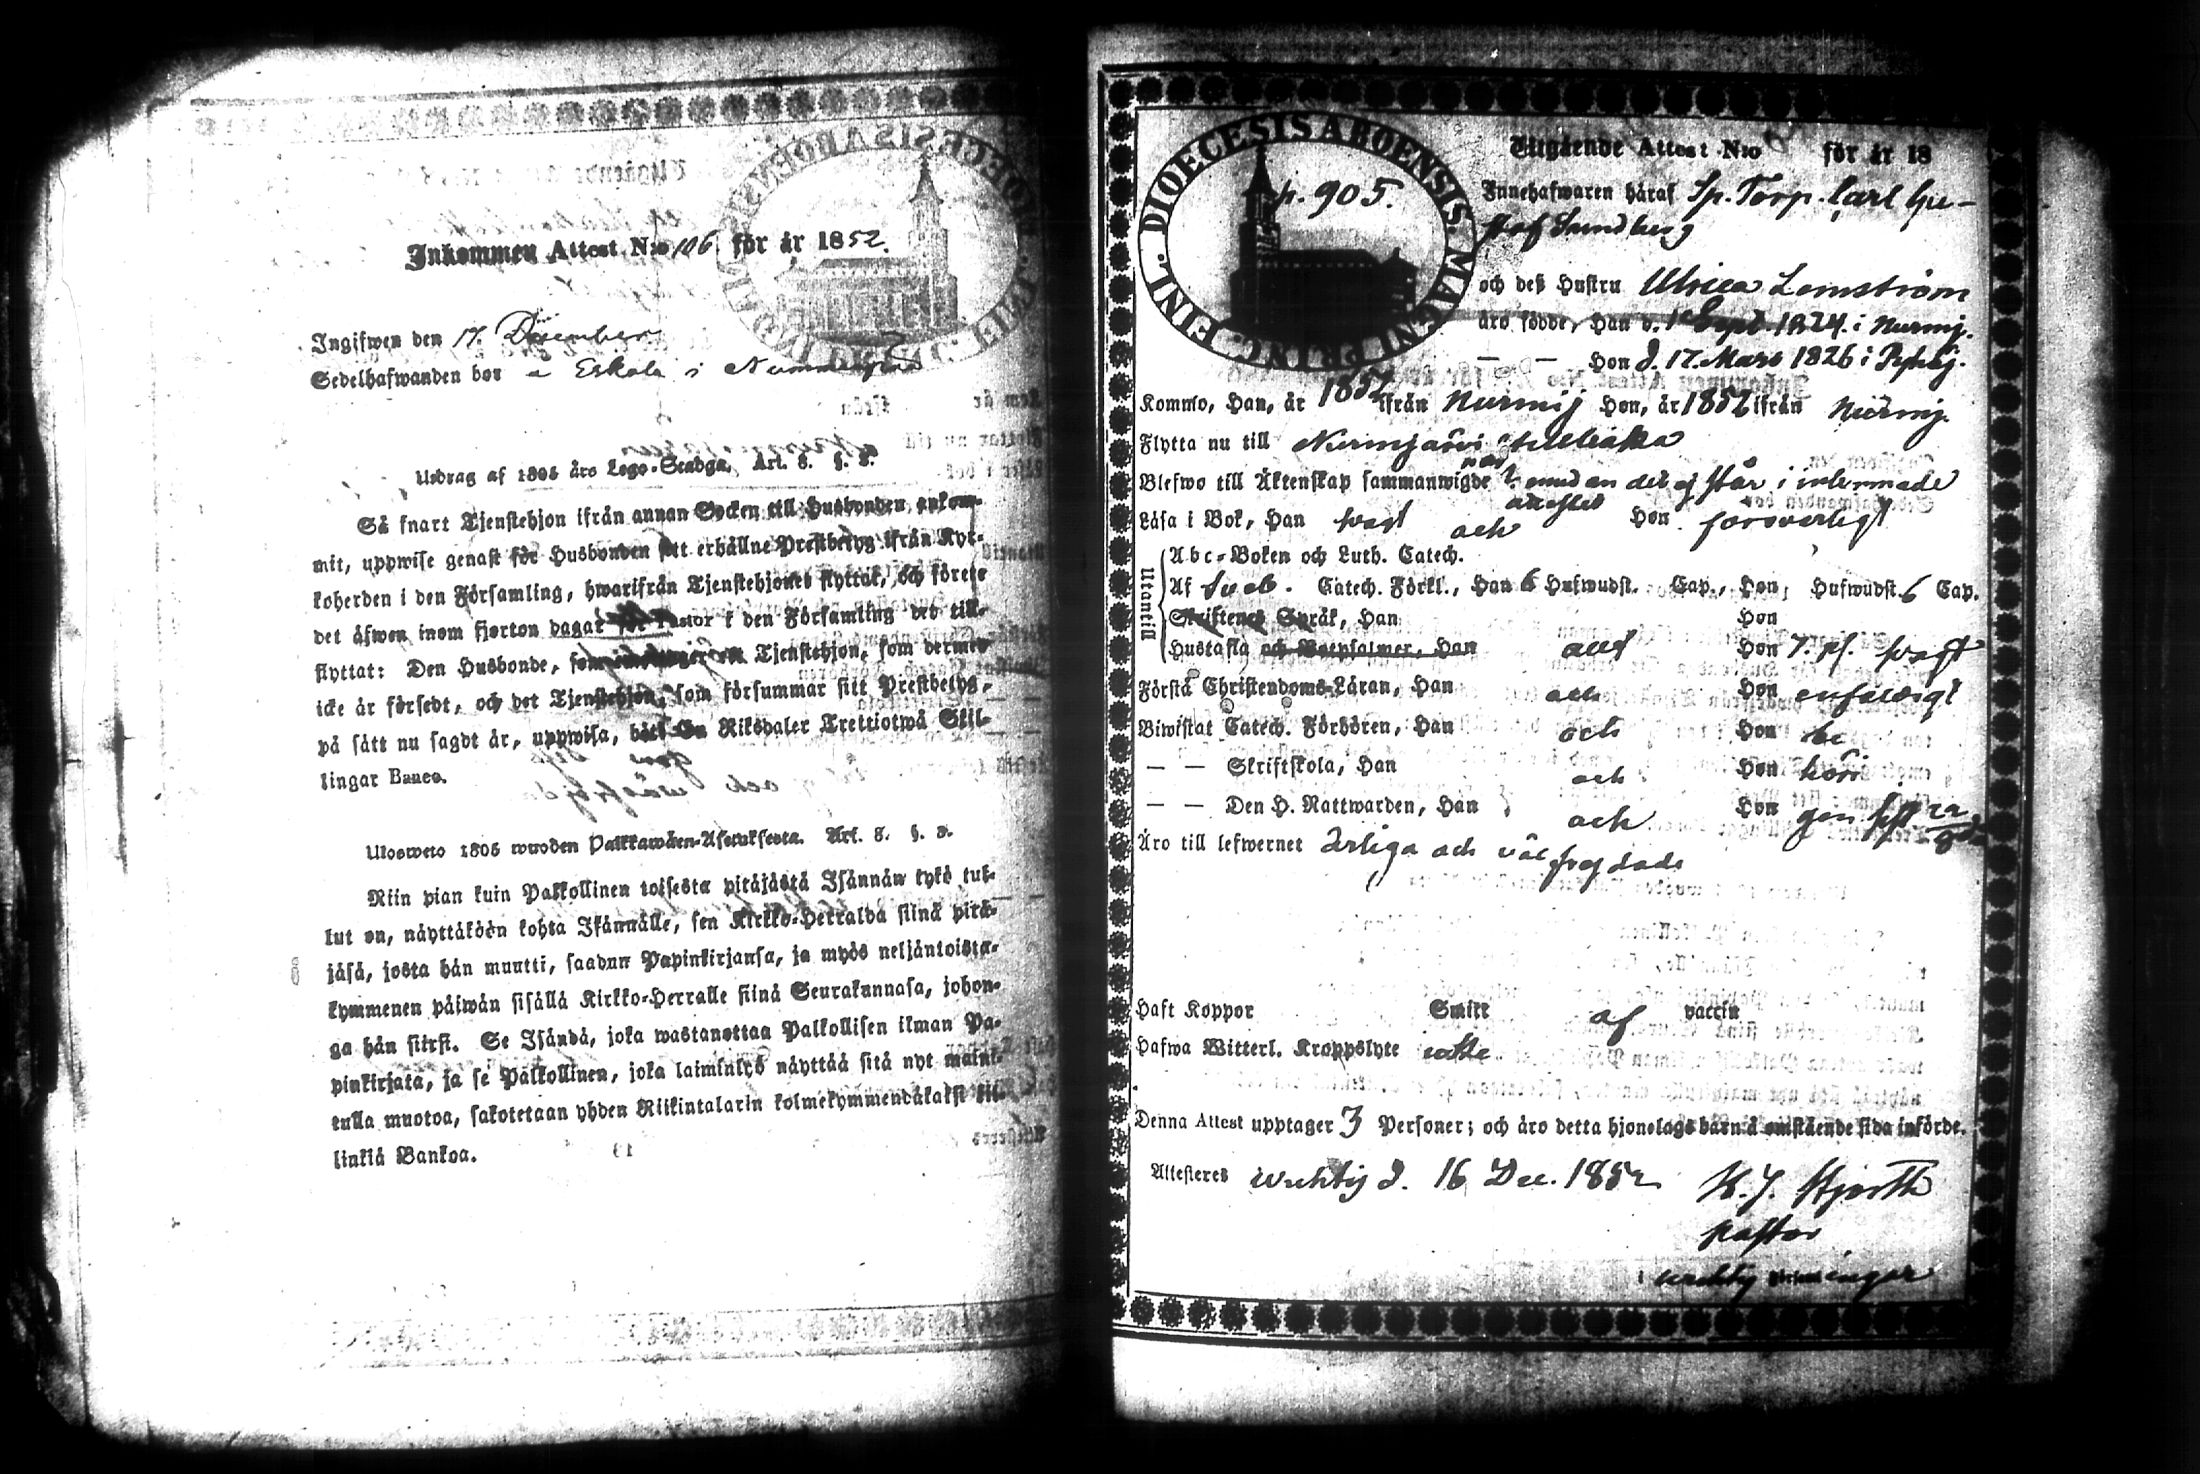 Inkommen Attest N:o 106 för år 1852.
Ingifwen den 17. December
Sedelhafwanden bor a Eskola i
Utdrag af 1805 års Lego-Stadga, Art. 8. §. 3.
Så snart Tjenstehjon ifrån annan Socken till Husbonden ankom-
mit, uppwise genast för Husbonden sitt erhållne Prestbetyg ifrån Kyr-
koherden i den Församling, hwarifrån Tjenstehjonet flyttat, och förete
det äfwen inom fjorton dagar för Pastor i den Församling det till-
flyttat: Den Husbonde, som emottager ett Tjenstehjon, som dermed
icke är försedt, och det Tjenstehjon, som försummar sitt Prestbetyg,
på sätt nu sagdt är, uppwisa, böte En Riksdaler Trettiotwå Skil-
lingar Banco.
Ulosweto 1805 wuoden Palkkawäen-Asetuksesta. Art. 8. §. 3.
Niin pian kuin Palkollinen toisesta pitäjästä Isännän tykö tul-
lut on, näyttäköön kohta Isännälle, sen Kirkko-Herralda siinä pitä-
jäsä, josta hän muutti, saadun Papinkirjansa, ja myös neljäntoista-
kymmenen päiwän sisällä Kirkko-Herralle siinä Seurakunnasa, johon-
ga hän siirsi. Se Isändä, joka wastanottaa Palkollisen ilman Pa-
pinkirjata, ja se Palkollinen, joka laiminlyö näyttää sitä nyt maini-
tulla muotoa, sakotetaan yhden Riikintalarin kolmekymmendäkaksi kil-
linkiä Bankoa.
DIOECESIS ABOENSIS. MAGNI PRINC. FINL.
p. 905.
Utgående Attest N:o för år 18
Innehafwaren häraf Sp. Torp. Carl Gu-
staf Sundberg
och deß Hustru Ulrica Lemström
äro födde, Han d. 1 Sept. 1824. i Nurmij.
— — Hon d. 17 Mars 1826 i
Kommo, Han, år 1852 ifrån Nurmij Hon, år 1852 ifrån Nurmij.
Flytta nu till Nurmijärvi tillbaka
Blefwo till Äktenskap sammanwigde
Läsa i Bok, Han svagt och Hon försvarligt
Utantill
Abc-Boken och Luth. Catech.
Af Sveb. Catech. Förkl., Han 6 Hufwudst. Cap., Hon, Hufwudst. 6 Cap.
Skriftenes Språk, Han Hon
Hustafla och Botpsalmer, Han och Hon 7. ps. svagt
Förstå Christendoms-Läran, Han och Hon enfaldigt
Biwistat Catech. Förhören, Han och Hon be
— — Skriftskola, Han och Hon höri
— — Den H. Nattwarden, Han och Hon gen
Äro till lefwernet ärliga och väl frejdade
Haft Koppor Smitt af vaccin
Hafwa Witterl. Kroppslyte icke
Denna Attest upptager 3 Personer; och äro detta hjonelags barn å omstående sida införde.
Attesteres Wichtis d. 16 Dec. 1852 K. J. Hjorth
Pastor